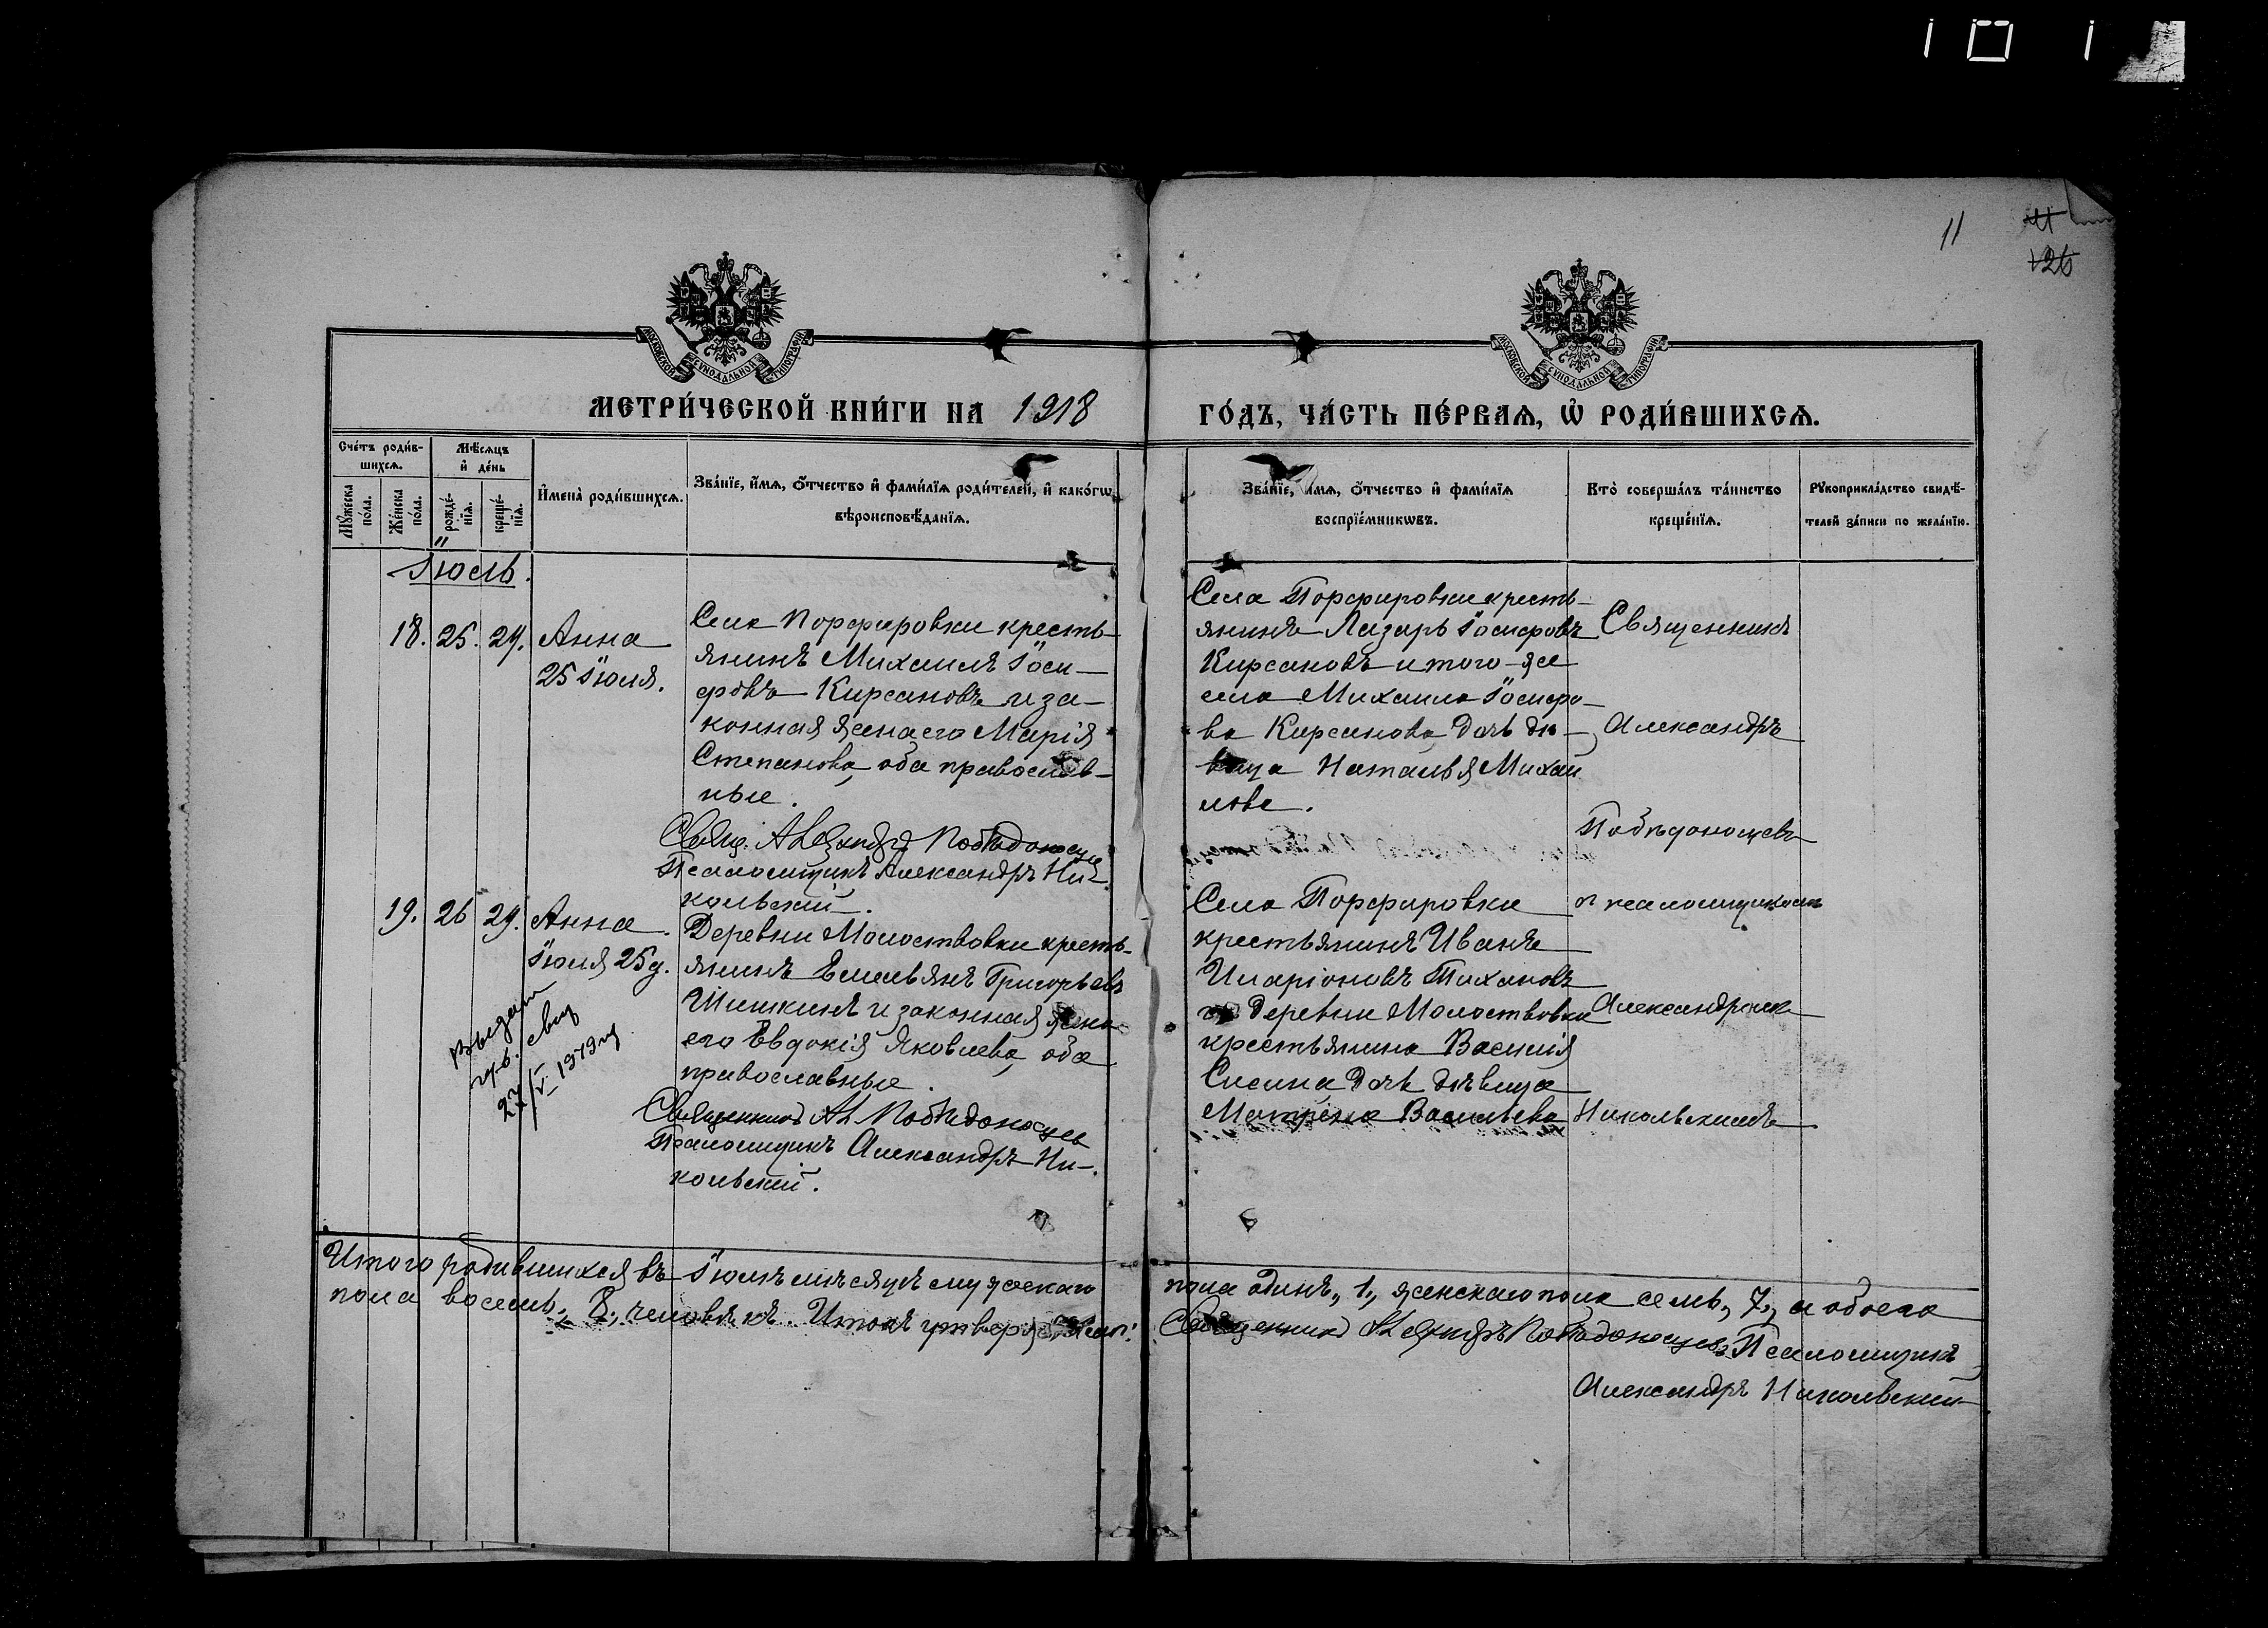 11
126
МОСКОВСКОЙ СУНОДАЛЬНОЙ ТИПОГРАФІИ
МОСКОВСКОЙ СУНОДАЛЬНОЙ ТИПОГРАФІИ
МЕТРИ́ЧЕСКОЙ КНИ́ГИ НА 1918
ГО́ДЪ, ЧА́СТЬ ПЕ́РВАѦ, Ѡ҆ РОДИ́ВШИХСѦ.
Сче́тъ роди́в-
шихсѧ.
Мѣ́сѧцъ
и҆ де́нь
Мꙋ́жеска
по́ла.
Же́нска
по́ла.
рожде́-
нїѧ.
креще́-
нїѧ.
И҆мена̀ роди́вшихсѧ.
Зва́нїе, и҆́мѧ, ѻ҆́тчество и҆ фами́лїѧ роди́телей, и҆ како́гѡ
вѣроисповѣ́данїѧ.
Зва́нїе, и҆́мѧ, ѻ҆́тчество и҆ фами́лїѧ
воспрїе́мникѡвъ.
Кто̀ соверша́лъ та́инство
креще́нїѧ.
Рꙋкоприкла́дство свидѣ́-
телей за́писи по жела́нїю.
Іюль.
18. 25. 29. Анна
25 Іюля.
Села Порфировки кресть-
янинъ Михаилъ Іоси-
фовъ Кирсановъ и за-
конная жена его Марія
Степанова, оба православ-
ные.
Свящ. Александръ Побѣдоносцевъ
Псаломщикъ Александръ Ни-
кольскій.
Села Порфировки кресть-
янинъ Лазарь Іосифовъ
Кирсановъ и того-же
села Михаила Іосифо-
ва Кирсанова дочь дѣ-
вица Наталья Михаи
лова.
Священникъ
Александръ
Побѣдоносцевъ
19. 26 29. Анна.
Іюля 25 д.
Выдан
св.
27/V 1949 г.
Деревни Молоствовки кресть-
янинъ Емельянъ Григорьевъ
Шишкинъ и законная жена
его Евдокія Яковлева, оба
православные.
Священникъ Ал. Побѣдоносцевъ
Псаломщикъ Александръ Ни-
кольскій.
Села Порфировки
крестьянинъ Иванъ
Иларіоновъ Тихановъ
деревни Молоствовки
крестьянина Василія
Сисина дочь дѣвица
Матрена Васильева
съ псаломщикомъ
Александромъ
Никольскимъ
Итого родившихся въ Іюлѣ мѣсяцѣ мужескаго
пола одинъ, 1, женскаго пола семь, 7, а обоего
пола восемь, 8, человѣкъ. Итогъ утвержд.
Священникъ Александръ Побѣдоносцевъ Псаломщикъ
Александръ Никольскій